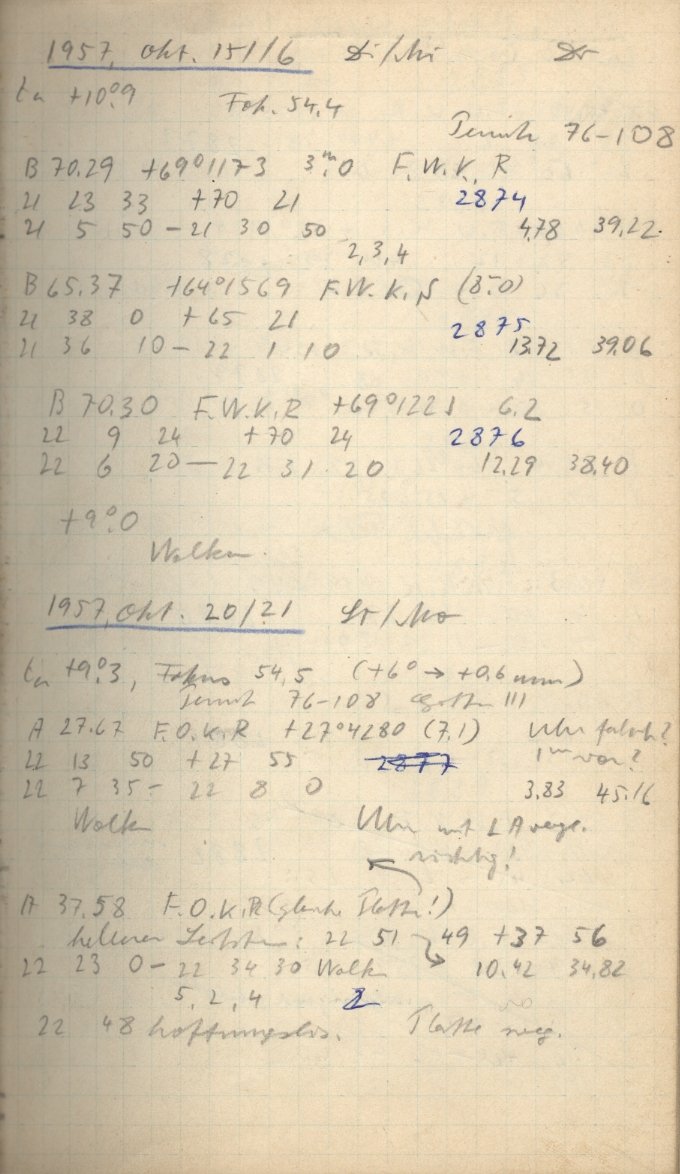 1957, Okt. 15/16 Di/Mi Dr
ta +10°.9 Fok. 54,4
76-108
B 70.29 +69°1173 3ᵐ.0 F.W.K.R
21 23 33 +70 21 2874
21 5 50 - 21 30 50 4,78 39,22
2,3,4
B 65.37 +64°1569 F.W.K.S (8.0)
21 38 0 + 65 21 2875
21 36 10 - 22 1 10 13,72 39,06
B 70.30 F.W.K.R +69°1221 6.2
22 9 24 +70 24 2876
22 6 20 - 22 31 20 12,29 38,40
+9°.0
Wolken.
1957, Okt. 20/21 So/Mo
ta +9°.3, Fokus 54,5 (+6° → +0,6 mm)
76-108 !!!
A 27.67 F.O.K.R +27°4280 (7,1) Uhr falsch?
22 13 50 +27 55 2877 1ᵐ vor?
22 7 35 - 22 8 0 3,83 45,16
Wolken Uhr mit
richtig!
A 37.58 F.O.K.R (gleiche Platte!)
hellerer 22 51 49 +37 56
22 23 0 - 22 34 30 Wolken 10,42 34,82
5, 2, 4 2
22 48 hoffnungslos. Platte weg.